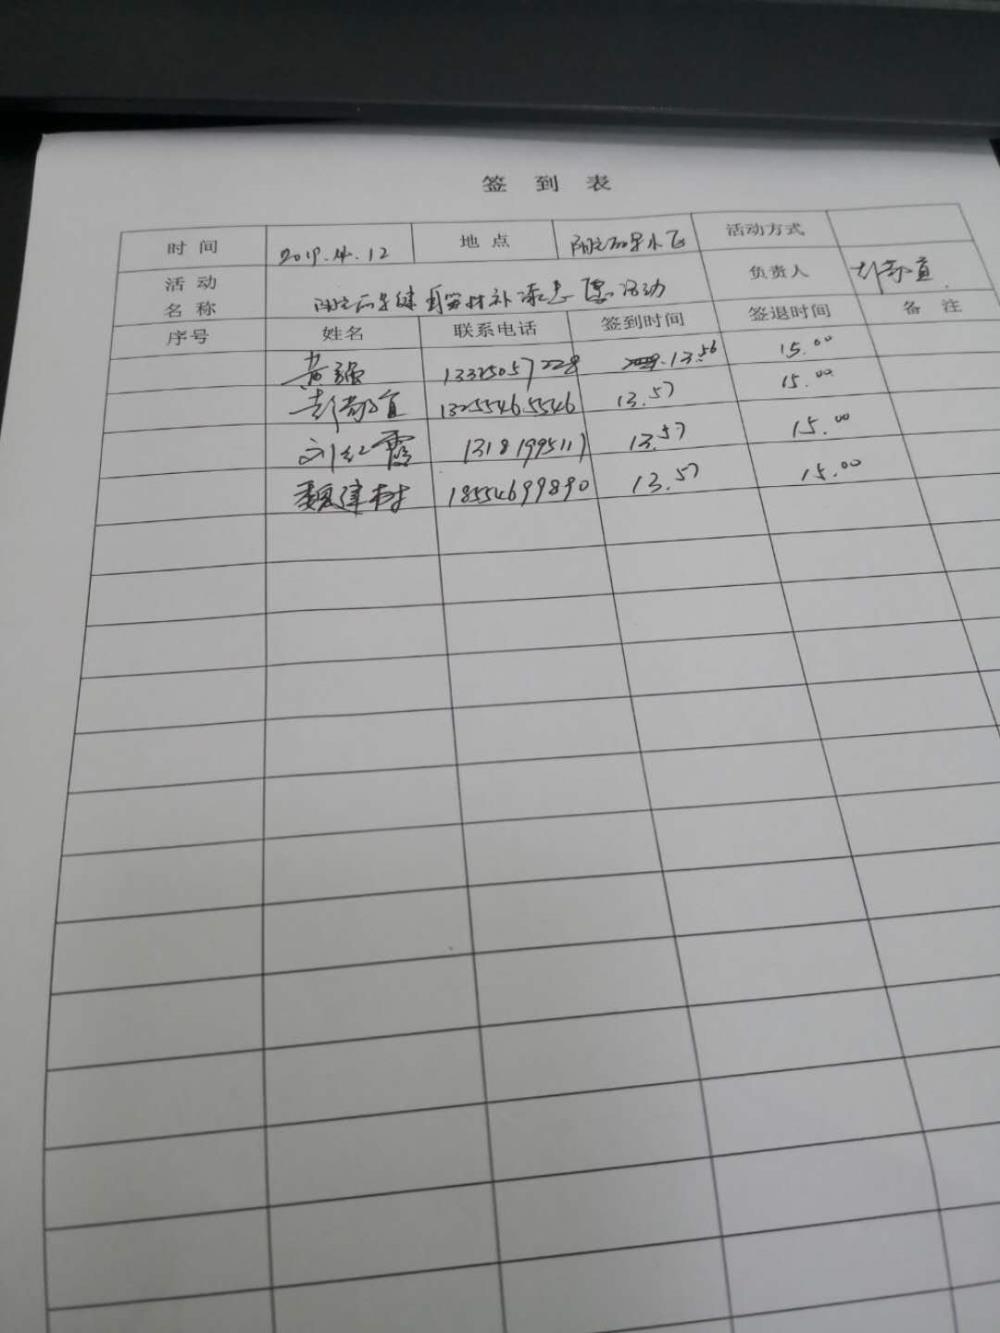 签到表
时间 2019.4.12 地点 活动方式
活动名称 活动 负责人
序号 姓名 联系电话 签到时间 签退时间 备注
黄强 13325057228 13.56 15.00
13255465546 13.57 15.00
刘红霞 13181995117 13.57 15.00
魏建树 18554699890 13.57 15.00